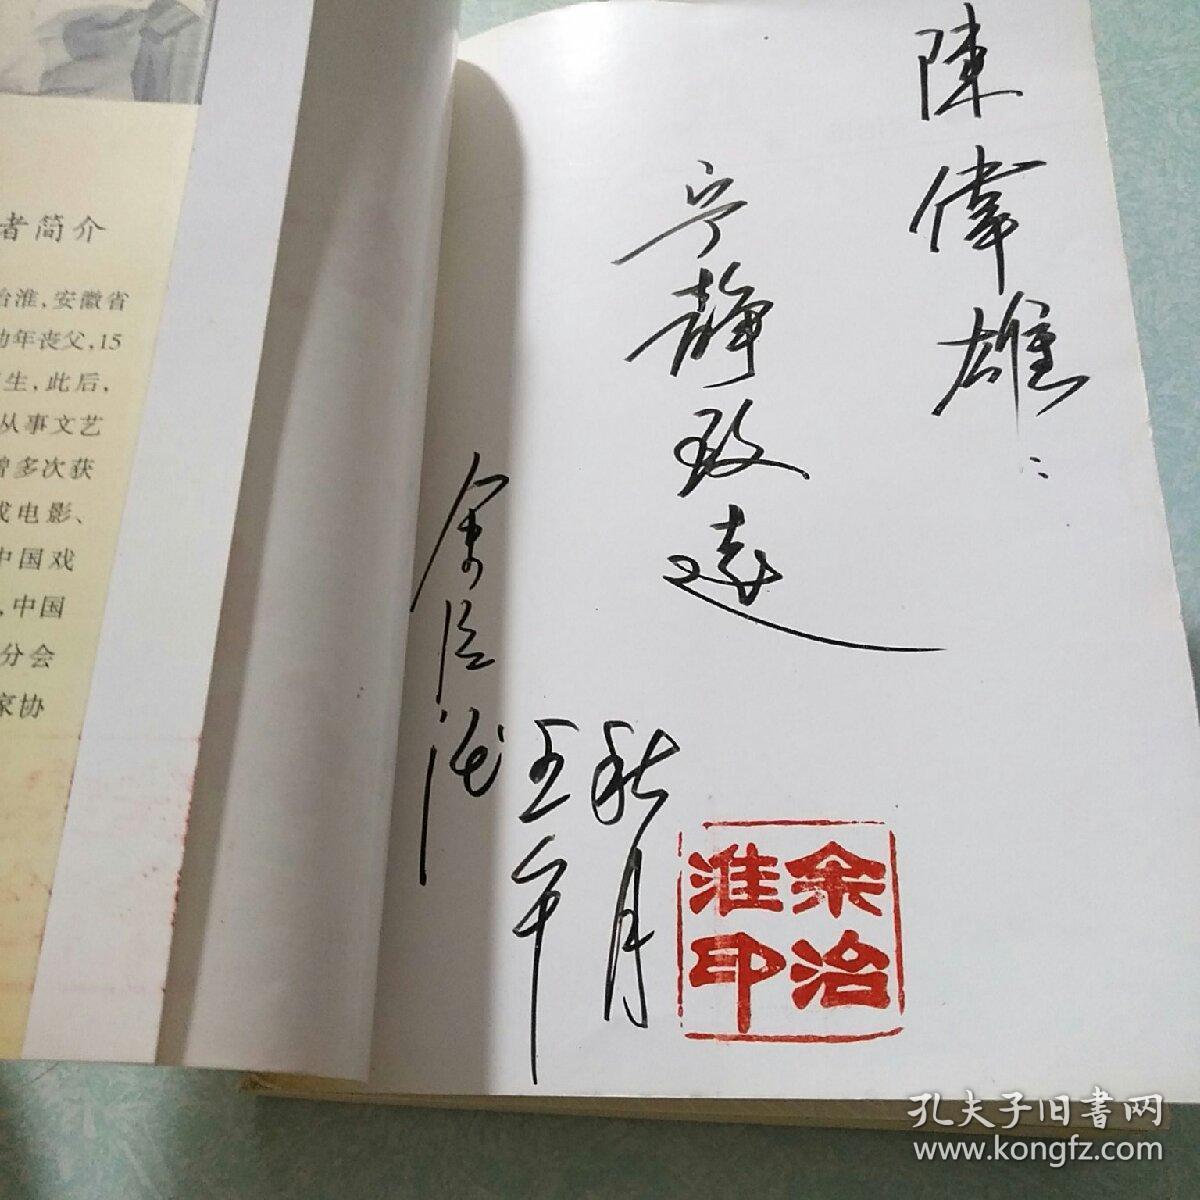 陳偉雄:
宁静致远
余治淮
壬午
秋月
余治
淮印
者简介
治淮,安徽省
幼年丧父,15
生,此后,
从事文艺
曾多次获
戏电影、
中国戏
,中国
分会
家协
孔夫子旧書网
www.kongfz.com